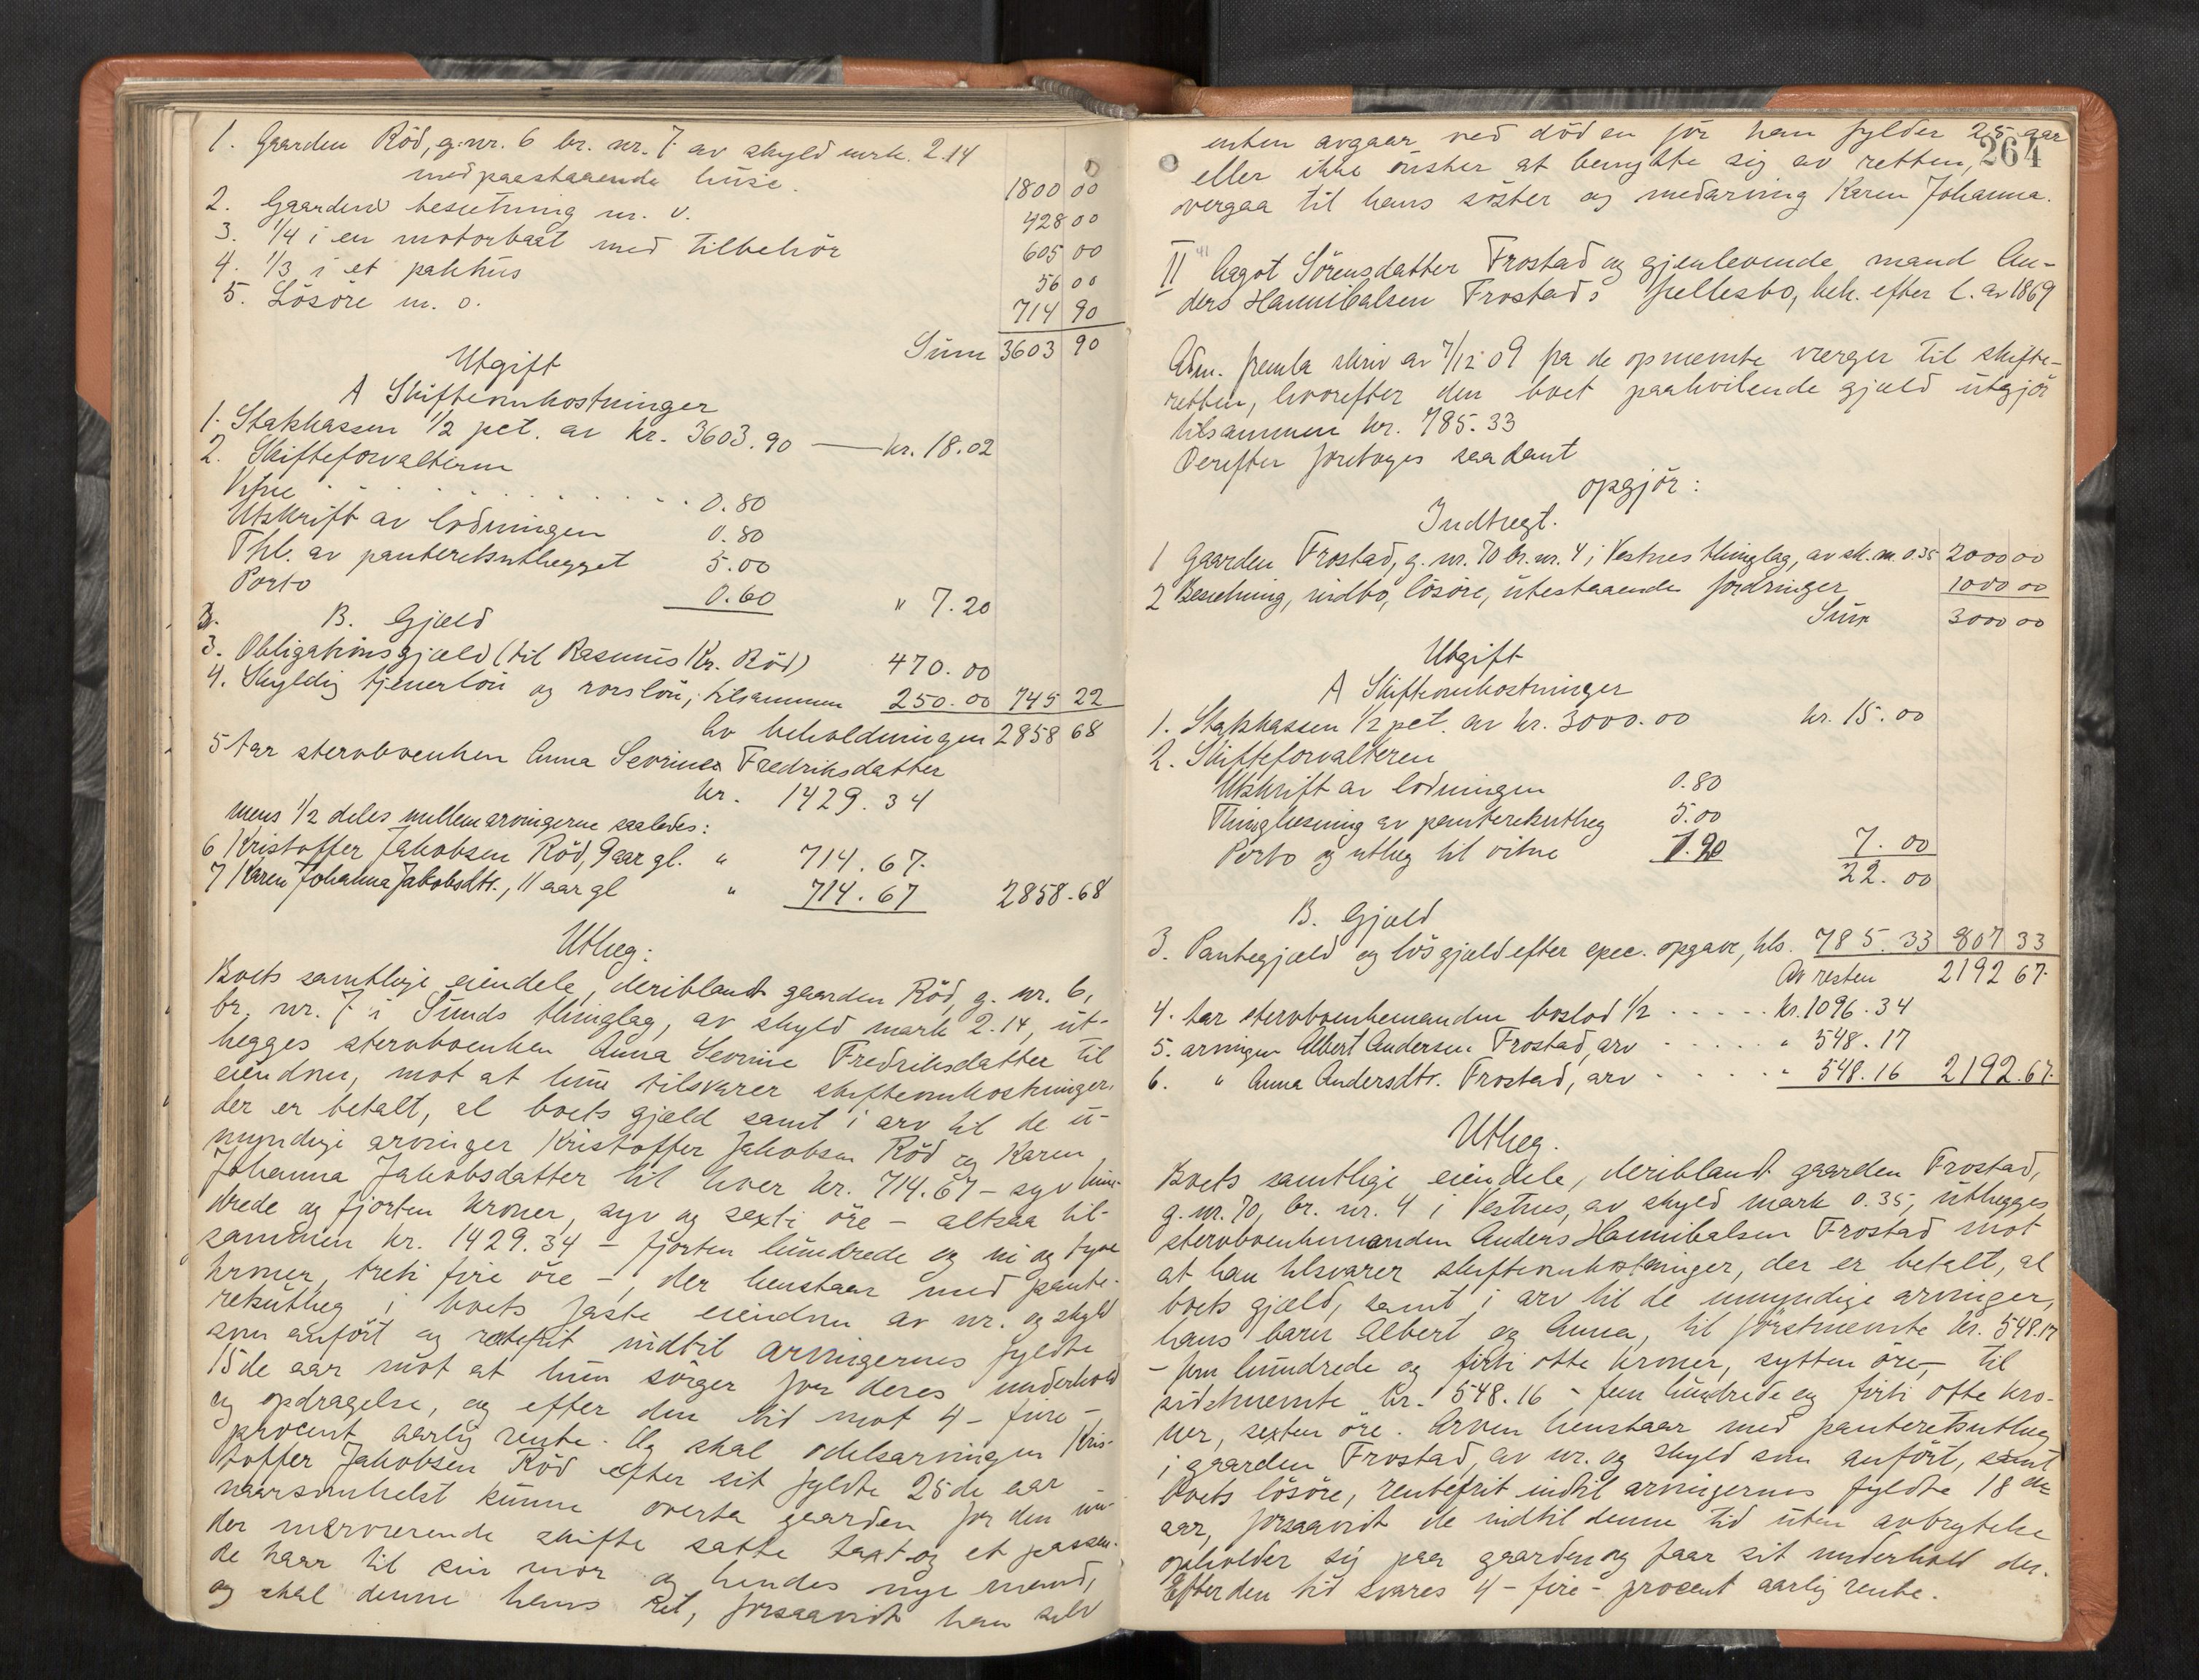 1. Gaarden Röd, g.nr. 6 br. nr. 7 av skyld mrk. 2.14
med paastaaende huse. 1800 00
2. Gaardens besetning m. v. 428 00
3. 1/4 i en motorbaat med tilbehör 605 00
4. 1/3 i et pakhus 56 00
5. Lösöre m. v. 714 90
Sum 3603 90
Utgift
A Skifteomkostninger
1. Statskassen 1/2 pct. av kr. 3603.90 — kr. 18.02
2. Skifteforvalteren
Vitne . . . . . 0.80
Utskrift av lodningen 0.80
Thl. av panteretsutlegget 5.00
Porto 0.60 " 7.20
B. Gjæld
3. Obligationsgjæld (til Rasmus Kr. Röd) 470.00
4. Skyldig tjenerlön og rorslön, tilsammen 250.00 745 22
Av beholdningen 2858 68
5 tar stervboenken Anna Sevrine Fredriksdatter
kr. 1429.34
mens 1/2 deles mellem arvingerne saaledes:
6 Kristoffer Jakobsen Röd, 9 aar gl. " 714.67.
7 Karen Johanna Jakobsdtr., 11 aar gl " 714.67 2858.68
Utlæg:
Boets samtlige eiendele, deriblandt gaarden Röd, g. nr. 6,
br. nr. 7 i Sunds thinglag, av skyld mark 2.14, ut-
lægges stervboenken Anna Sevrine Fredriksdatter til
eiendom, mot at hun tilsvarer skifteomkostninger,
der er betalt, al boets gjæld samt i arv til de u-
myndige arvinger Kristoffer Jakobsen Röd og Karen
Johanna Jakobsdatter til hver kr. 714.67 – syv hun-
drede og fjorten kroner, syv og sexti öre – altsaa til-
sammen kr. 1429.34 – fjorten hundrede og ni og tyve
kroner, treti fire öre –, der henstaar med pante-
retsutlæg i boets faste eiendom av nr. og skyld
som anfört og rentefrit indtil arvingernes fyldte
15de aar mot at hun sörger for deres underhold
og opdragelse, og efter den tid mot 4 – fire –
procent aarlig rente. Og skal odelsarvingen Kris-
toffer Jakobsen Röd efter sit fyldte 25de aar
naarsomhelst kunne overta gaarden for den un-
der nærværende skifte satte taxt og et passen-
de kaar til sin mor og hendes nye mand,
og skal denne hans ret, forsaavidt han selv
264
enten avgaar ved döden för han fylder 25 aar
eller ikke önsker at benytte sig av retten,
overgaa til hans söster og medarving Karen Johanna.
II Aagot Sörensdatter Frostad og gjenlevende mand An-
ders Hannibalsen Frostads fællesbo, beh. efter l. av 1869
Adm. fremla skriv av 7/12 09 fra de opnævnte værger til skifte-
retten, hvorefter den boet paahvilende gjæld utgjör
tilsammen kr. 785.33
Derefter foretoges saadant
opgjör:
Indtægt.
1 Gaarden Frostad, g. nr. 70 br. nr. 4 i Vestnes thinglag, av sk. m. 0.35 2000 00
2 Besetning, indbo, lösöre, utestaaende fordringer 1000 00
Sum 3000 00
Utgift
A Skifteomkostninger
1. Statskassen 1/2 pct. av kr. 3000.00 kr. 15.00
2. Skifteforvalteren
Utskrift av lodningen 0.80
Thinglæsning av panteretsutlæg 5.00
Porto og utlæg til vitne 1.20 7.00
22.00
B. Gjæld
3. Pantegjæld og lösgjæld efter spec. opgave, tils. 785.33 807 33
Av resten 2192 67.
4. tar stervboenkemanden boslod 1/2 . . . . . kr. 1096.34
5. arvingen Albert Andersen Frostad, arv . . . . . " 548.17
6. " Anna Andersdtr. Frostad, arv . . . . . " 548.16 2192.67.
Utlæg.
Boets samtlige eiendele, deriblandt gaarden Frostad,
g. nr. 70, br. nr. 4 i Vestnes, av skyld mark 0.35, utlægges
stervboenkemanden Anders Hannibalsen Frostad mot
at han tilsvarer skifteomkostninger, der er betalt, al
boets gjæld, samt i arv til de umyndige arvinger,
hans barn Albert og Anna, til förstnævnte kr. 548.17
– fem hundrede og firti otte kroner, sytten öre, – til
sidstnævnte kr. 548.16 – fem hundrede og firti otte kro-
ner, sexten öre. Arven henstaar med panteretsutlæg
i gaarden Frostad, av nr. og skyld som anfört, samt
boets lösöre, rentefrit indtil arvingernes fyldte 18de
aar, forsaavidt de indtil denne tid uten avbrytelse
opholder sig paa gaarden og faar sit underhold der.
Efter den tid svares 4 – fire – procent aarlig rente.